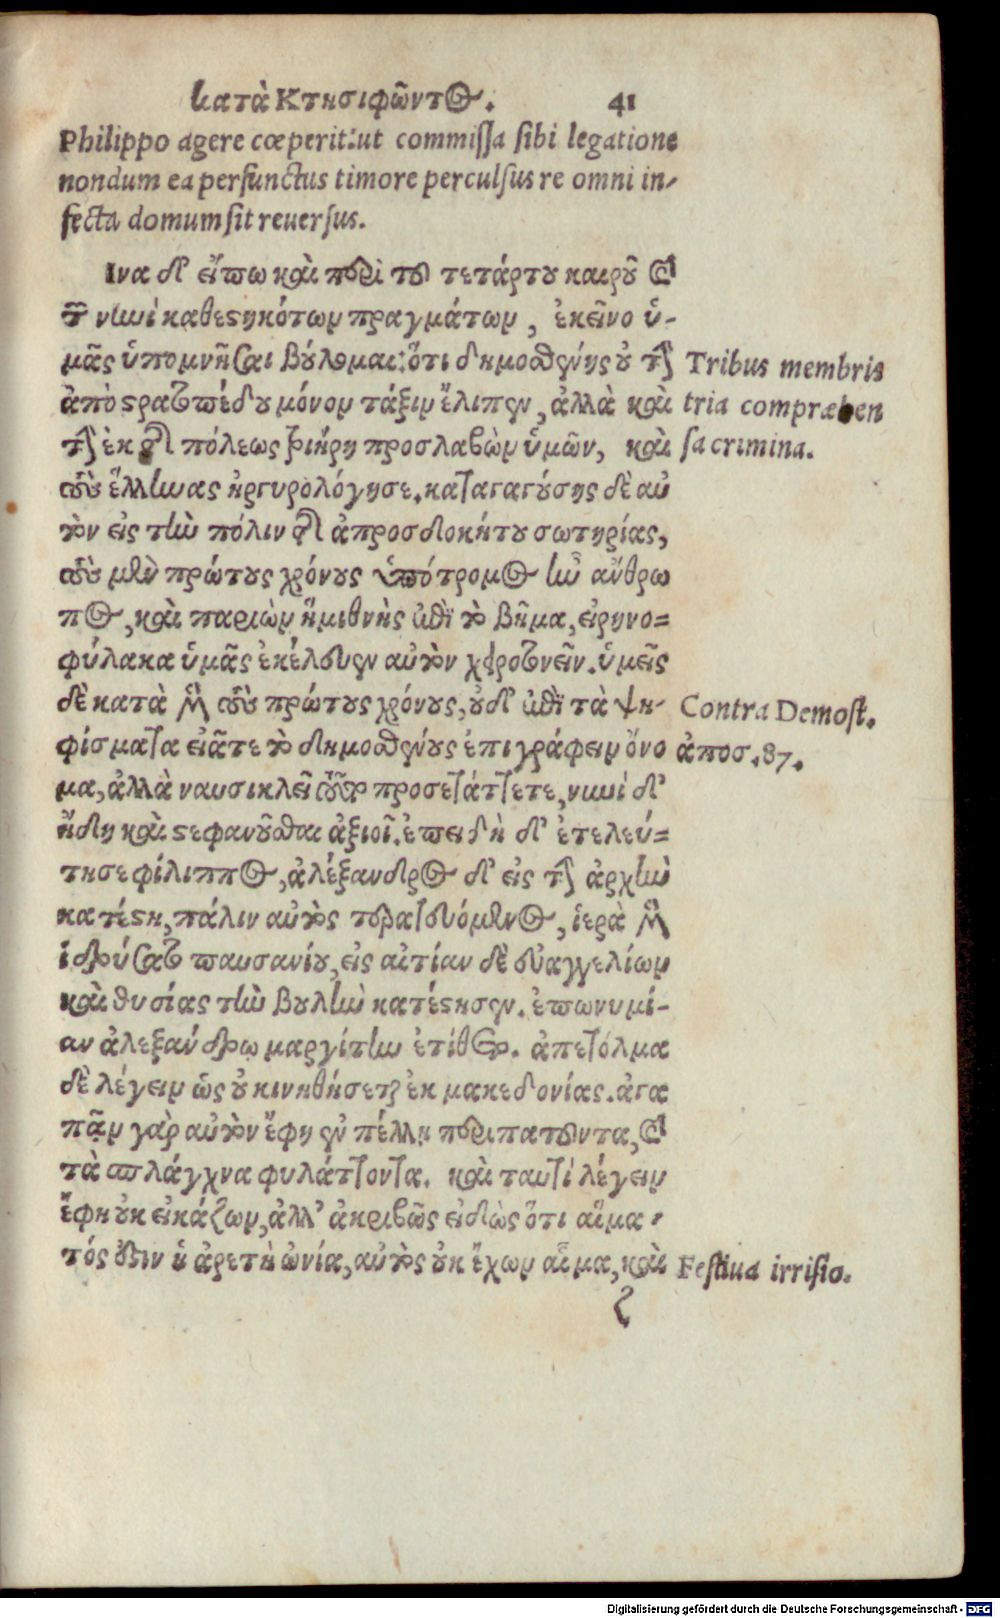 κατὰ Κτησιφῶντος. 41
Philippo agere cœperit:ut commissa sibi legatione
nondum ea perfunctus timore perculsus re omni in-
fecta domum sit reuersus.
Ινα δ' εἴπω καὶ περὶ τοῦ τετάρτου καιροῦ καὶ
τῶν νυνὶ καθεστηκότων πραγμάτων, ἐκεῖνο ὑ-
μᾶς ὑπομνῆσαι βούλομαι: ὅτι δημοσθένης οὐ τὴν
ἀπὸ στρατοπέδου μόνον τάξιν ἔλιπεν, ἀλλὰ καὶ
τὴν ἐκ τῆς πόλεως τριήρη προσλαβὼν ὑμῶν, καὶ
τοὺς ἕλληνας ἠργυρολόγησε. καταγαγούσης δὲ αὐ
τὸν εἰς τὴν πόλιν τῆς ἀπροσδιοκήτου σωτηρίας,
τοὺς μὲν πρώτους χρόνους ὑπότρομος ἦν αὔθρω
πος, καὶ παριὼν ἡμιθνὴς ἐπὶ τὸ βῆμα, εἰρηνο=
φύλακα ὑμᾶς ἐκέλευεν αὐτὸν χειροτονεῖν. ὑμεῖς
δὲ κατὰ μὲν τοὺς πρώτους χρόνους, οὐδ' ἐπὶ τὰ ψη-
φίσματα εἰᾶτε τὸ δημοσθένους ἐπιγράφειν ὄνο
μα, ἀλλὰ ναυσικλεῖ τοῦτο προσετάττετε, νυνὶ δ'
ἤδη καὶ στεφανοῦσθαι ἀξιοῖ. ἐπειδὴ δ' ἐτελεύ=
τησε φίλιππος, ἀλέξανδρος δ' εἰς τὴν ἀρχὴν
κατέστη, πάλιν αὐτὸς τερατευόμενος, ἱερὰ μὲν
ἱδρύσατο παυσανίου, εἰς αἰτίαν δὲ εὐαγγελίων
καὶ θυσίας τὴν βουλὴν κατέστησεν. ἐπωνυμί-
αν ἀλεξάνδρῳ μαργίτην ἐτίθετο. ἀπετόλμα
δὲ λέγειν ὡς οὐ κινηθήσεται ἐκ μακεδονίας. ἀγα
πᾷν γὰρ αὐτὸν ἔφη ἐν πέλλῃ περιπατοῦντα, καὶ
τὰ σπλάγχνα φυλάττοντα. καὶ ταυτὶ λέγειν
ἔφη οὐκ εἰκάζων, ἀλλ' ἀκριβῶς εἰδὼς ὅτι αἵμα-
τός ἐστιν ἡ ἀρετὴ ὠνία, αὐτὸς οὐκ ἔχων αἷμα, καὶ
ζ
Tribus membris
tria compræhen
sa crimina.
Contra Demost.
ἀποσ. 87.
Festiua irrisio.
Digitalisierung gefördert durch die Deutsche Forschungsgemeinschaft - DFG